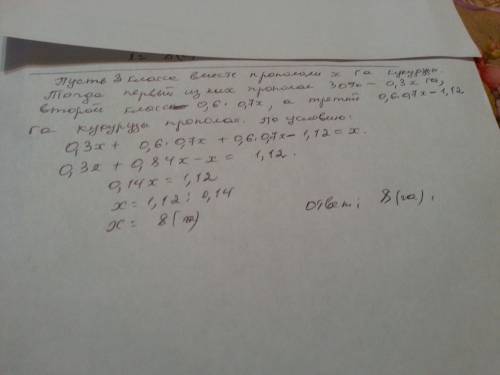 Пусть 3 класса вместе пропололи x га кукурузы.
Тогда первый из них прополол 30% - 0,3x га,
второй класс - 0,6·0,7x, а третий 0,6·0,7x-1,12
га кукурузы прополол. По условию:
0,3x + 0,6·0,7x + 0,6·0,7x - 1,12 = x.
0,3x + 0,84x - x = 1,12.
0,14x = 1,12
x = 1,12 : 0,14
x = 8 (га)
ответ: 8 (га).